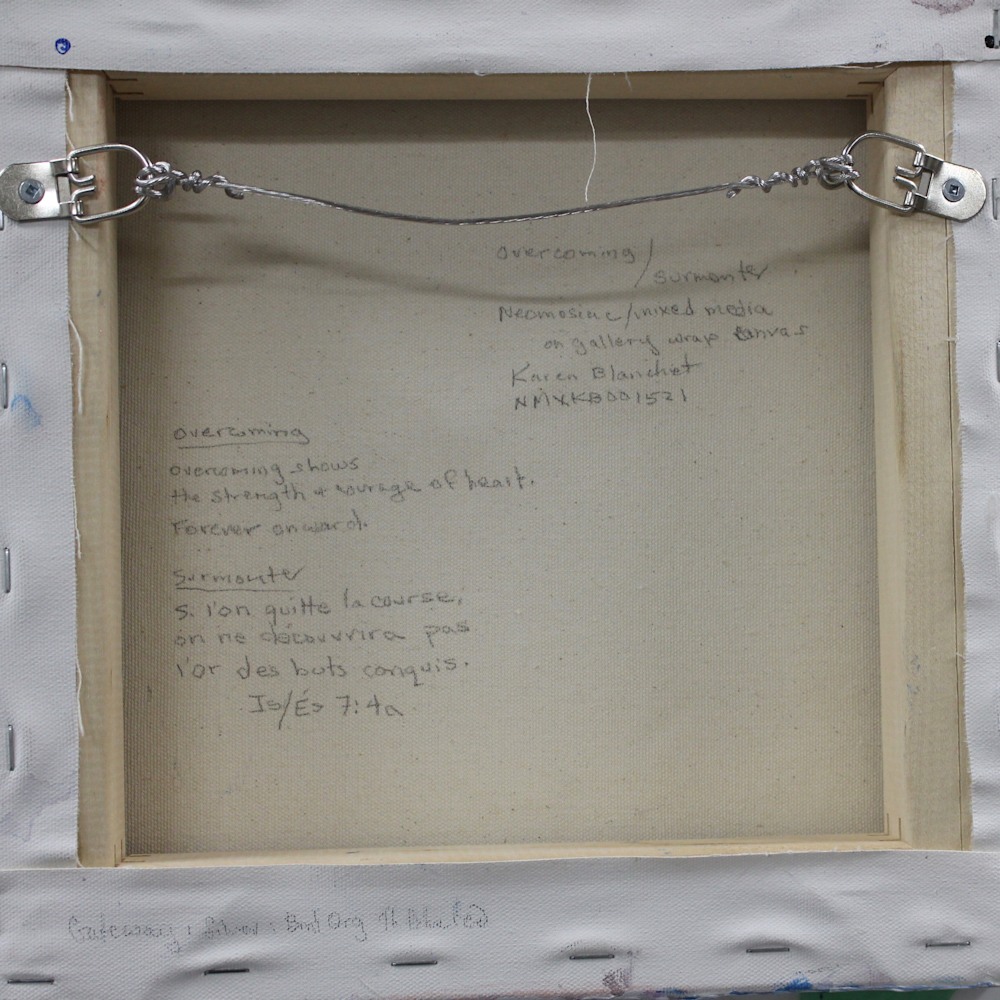 overcoming/
surmonter
Neomosiac/mixed media
on gallery wrap canvas
Karen Blanchet
NMXKB001521
overcoming
overcoming shows
the strength + courage of heart.
Forever onward.
Surmonter
Si l'on quitte la course,
on ne découvrira pas
l'or des buts conquis.
Is/És 7:4a
Gateway: Silver: Org